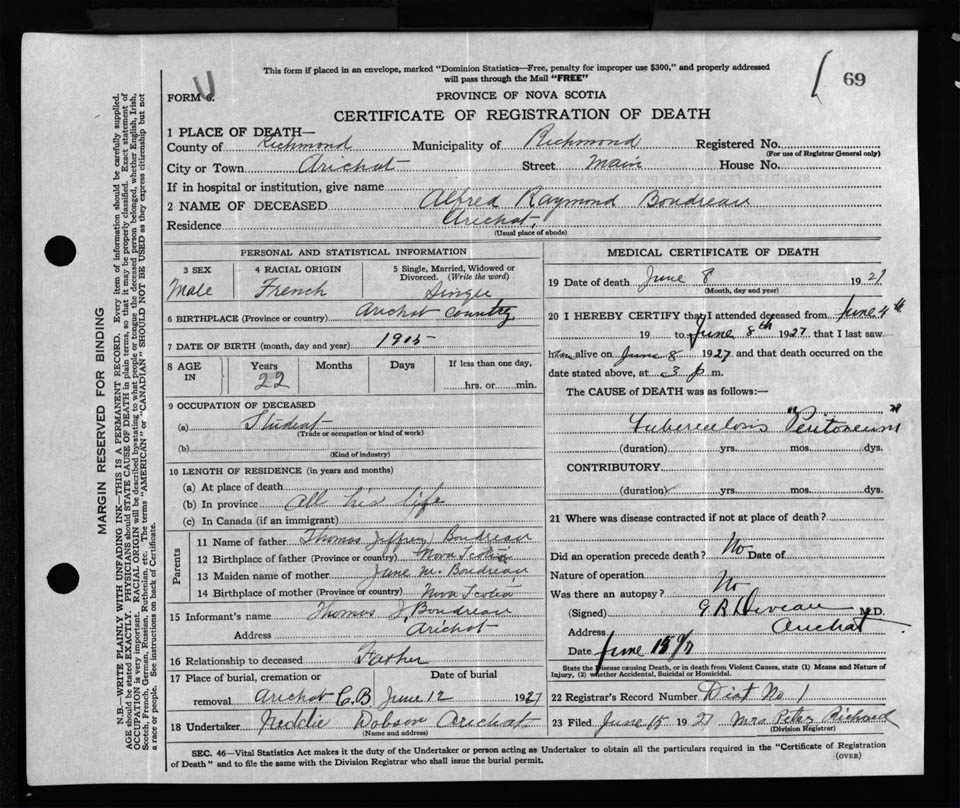 This form if placed in an envelope, marked "Dominion Statistics—Free, penalty for improper use $300," and properly addressed
will pass through the Mail "FREE"
69
FORM 6.
PROVINCE OF NOVA SCOTIA
CERTIFICATE OF REGISTRATION OF DEATH
1 PLACE OF DEATH—
County of Richmond Municipality of Richmond Registered No.
(For use of Registrar General only)
City or Town Arichat Street Main House No.
If in hospital or institution, give name
2 NAME OF DECEASED Alfred Raymond Boudreau
Residence Arichat,
(Usual place of abode)
PERSONAL AND STATISTICAL INFORMATION
3 SEX 4 RACIAL ORIGIN 5 Single, Married, Widowed or
Divorced. (Write the word)
Male French Single
6 BIRTHPLACE (Province or country) Arichat country
7 DATE OF BIRTH (month, day and year) 1905
8 AGE IN Years Months Days If less than one day,
22 hrs. or min.
9 OCCUPATION OF DECEASED
(a) Student
(Trade or occupation or kind of work)
(b)
(Kind of industry)
10 LENGTH OF RESIDENCE (in years and months)
(a) At place of death
(b) In province All his life
(c) In Canada (if an immigrant)
Parents
11 Name of father Thomas Jeffrey Boudreau
12 Birthplace of father (Province or country) Nova Scotia
13 Maiden name of mother Jane M. Boudreau
14 Birthplace of mother (Province or country) Nova Scotia
15 Informant's name Thomas J. Boudreau
Address Arichat
16 Relationship to deceased Father
17 Place of burial, cremation or Date of burial
removal Arichat C.B June 12 1927
18 Undertaker Freddie Dobson Arichat
(Name and address)
MEDICAL CERTIFICATE OF DEATH
19 Date of death June 8 1927
(Month, day and year)
20 I HEREBY CERTIFY that I attended deceased from June 4th
19 to June 8th 1927 that I last saw
him alive on June 8 1927 and that death occurred on
date stated above, at 3 p m.
The CAUSE of DEATH was as follows:—
Tuberculosis "Peritoneum"
(duration) yrs. mos. dys.
CONTRIBUTORY
(duration) yrs. mos. dys.
21 Where was disease contracted if not at place of death?
Did an operation precede death? No Date of
Nature of operation
Was there an autopsy? No
(Signed) M.D.
Address Arichat
Date June 15
State the Disease causing Death, or in Death from Violent Causes, state (1) Means and Nature of
Injury, (2) whether Accidental, Suicidal or Homicidal.
22 Registrar's Record Number Dist No 1
23 Filed June 15 1927 Mrs Peter Richard
(Division Registrar)
SEC. 46—Vital Statistics Act makes it the duty of the Undertaker or person acting as Undertaker to obtain all the particulars required in the "Certificate of Registration
of Death" and to file the same with the Division Registrar who shall issue the burial permit.
(OVER)
MARGIN RESERVED FOR BINDING
N.B.—WRITE PLAINLY WITH UNFADING INK—THIS IS A PERMANENT RECORD. Every item of information should be carefully supplied.
AGE should be stated EXACTLY. PHYSICIANS should STATE CAUSE OF DEATH in plain terms, so that it may be properly classified. Exact statement of
OCCUPATION is very important. RACIAL ORIGIN will be described by stating to what people or tongue the deceased person belonged, whether English, Irish,
Scotch, French, German, Russian, Ruthenian, etc. The terms "AMERICAN" or "CANADIAN" SHOULD NOT BE USED as they express citizenship but not
a race or people. See instructions on back of Certificate.